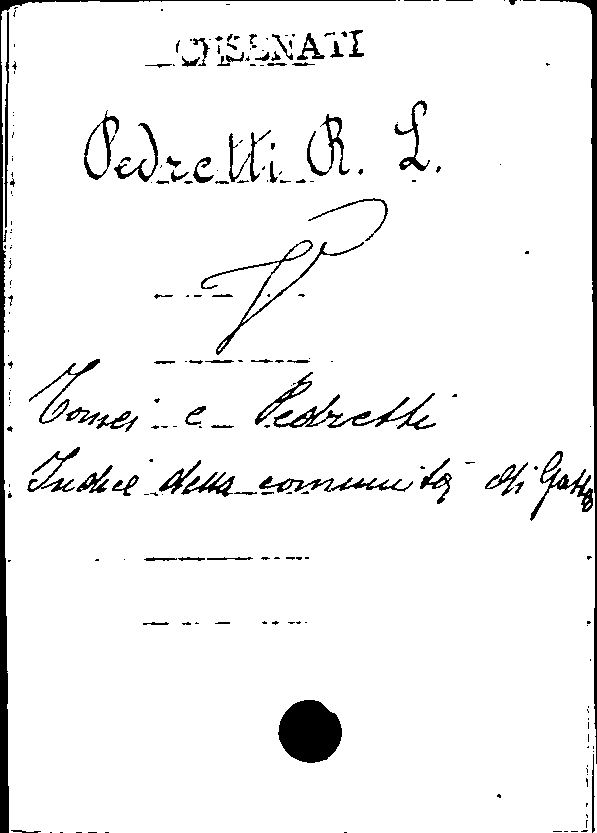 CESENATI
Pedretti R. L.
V
Tomei e Pedretti
Indice della comunità di Gatteo